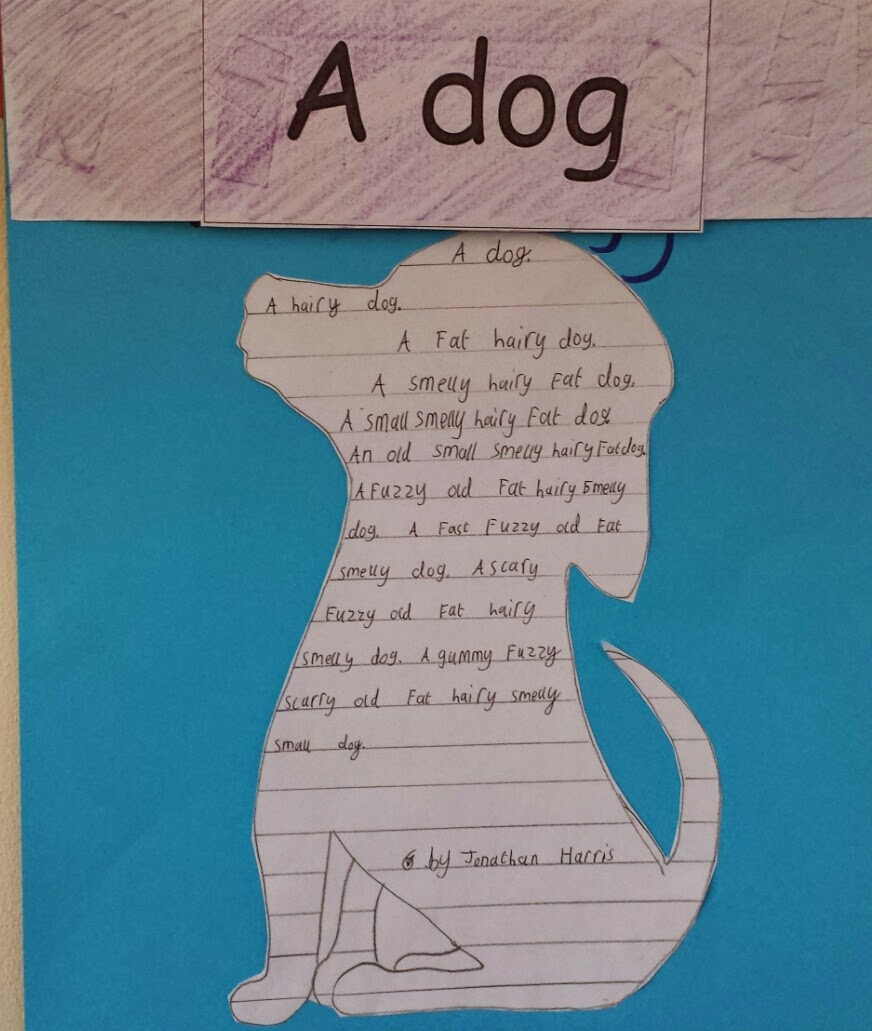 A dog
A dog.
A hairy dog.
A Fat hairy dog.
A smelly hairy Fat dog.
A small smelly hairy Fat dog
An old small smelly hairy Fat dog.
A Fuzzy old Fat hairy smelly
dog. A Fast Fuzzy old Fat
smelly dog. A scary
Fuzzy old Fat hairy
smelly dog. A gummy Fuzzy
scarry old Fat hairy smelly
small dog.
by Jonathan Harris